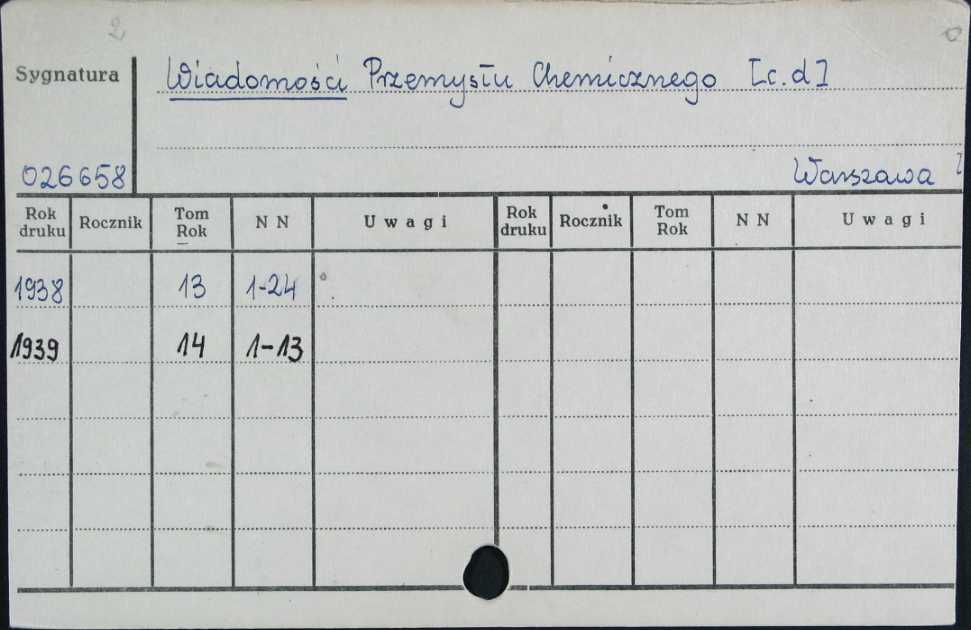 2
Sygnatura Wiadomości Przemysłu Chemicznego [c.d]
026658 Warszawa
Rok druku Rocznik Tom Rok N N Uwagi Rok druku Rocznik Tom Rok N N Uwagi
1938 13 1-24
1939 14 1-13